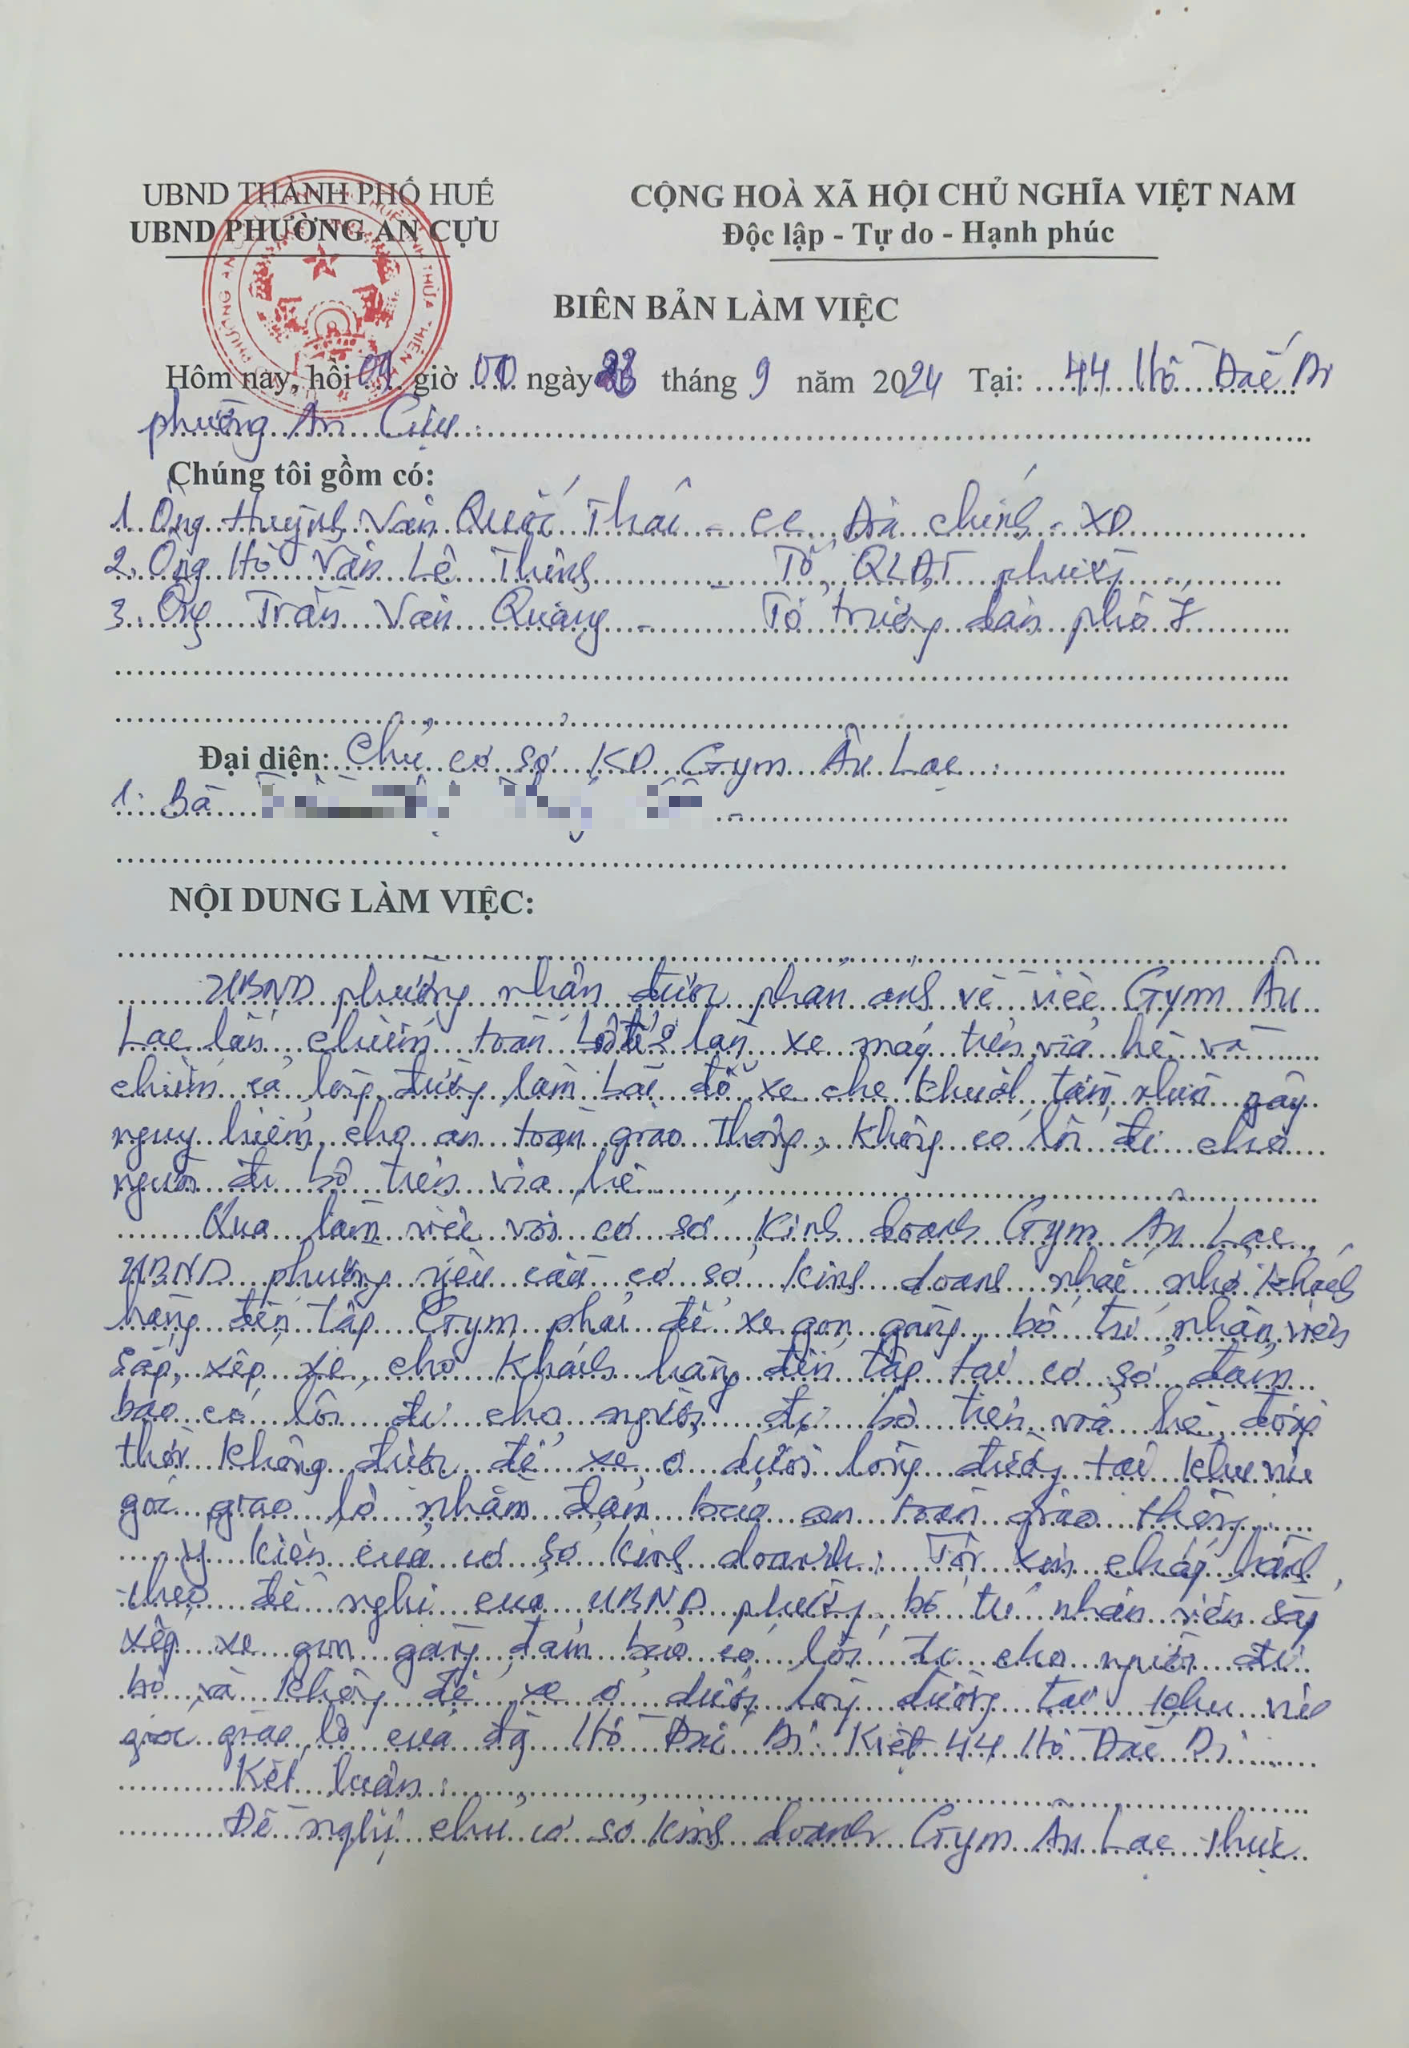 UBND THÀNH PHỐ HUẾ
UBND PHƯỜNG AN CỰU
CỘNG HOÀ XÃ HỘI CHỦ NGHĨA VIỆT NAM
Độc lập - Tự do - Hạnh phúc
BIÊN BẢN LÀM VIỆC
Hôm nay, hồi giờ 00 ngày 23 tháng 9 năm 2024 Tại: 44 Hồ Đắc Di
phường An Cựu.
Chúng tôi gồm có:
1. Ông Huỳnh Văn Quốc Thái - CC Địa chính - XD
2. Ông Hồ Văn Lê Thịnh - Tổ QLĐT phường
3. Ông Trần Văn Quang - Tổ trưởng dân phố 7
Đại diện: Chủ cơ sở KD Gym Âu Lạc.
1. Bà
NỘI DUNG LÀM VIỆC:
UBND phường nhận được phản ánh về việc Gym Âu
Lạc lấn chiếm toàn bộ để 2 làn xe máy trên vỉa hè và
chiếm cả lòng đường làm bãi đỗ xe che khuất tầm nhìn gây
nguy hiểm cho an toàn giao thông, không có lối đi cho
người đi bộ trên vỉa hè.
Qua làm việc với cơ sở kinh doanh Gym Âu Lạc,
UBND phường yêu cầu cơ sở kinh doanh nhắc nhở khách
hàng đến tập Gym phải để xe gọn gàng, bố trí nhân viên
sắp xếp xe cho khách hàng đến tập tại cơ sở đảm
bảo có lối đi cho người đi bộ trên vỉa hè, đồng
thời không được để xe ở dưới lòng đường tại khu vực
góc giao lộ nhằm đảm bảo an toàn giao thông.
Ý kiến của cơ sở kinh doanh: Tôi xin chấp hành
theo đề nghị của UBND phường, bố trí nhân viên sắp
xếp xe gọn gàng, đảm bảo có lối đi cho người đi
bộ và không để xe ở dưới lòng đường tại khu vực
góc giao lộ của đg Hồ Đắc Di - Kiệt 44 Hồ Đắc Di.
Kết luận:
Đề nghị chủ cơ sở kinh doanh Gym Âu Lạc thực